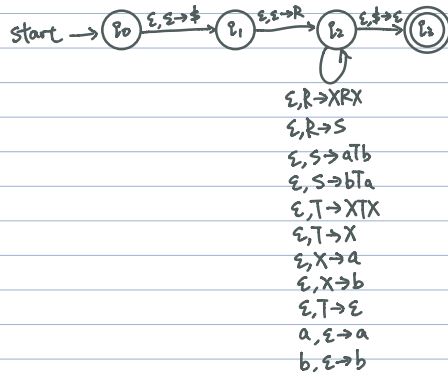 start q0 ε,ε→$ q1 ε,ε→R q2 ε,$→ε q3
ε,R→XRX
ε,R→S
ε,S→aTb
ε,S→bTa
ε,T→XTX
ε,T→X
ε,X→a
ε,X→b
ε,T→ε
a,ε→a
b,ε→b